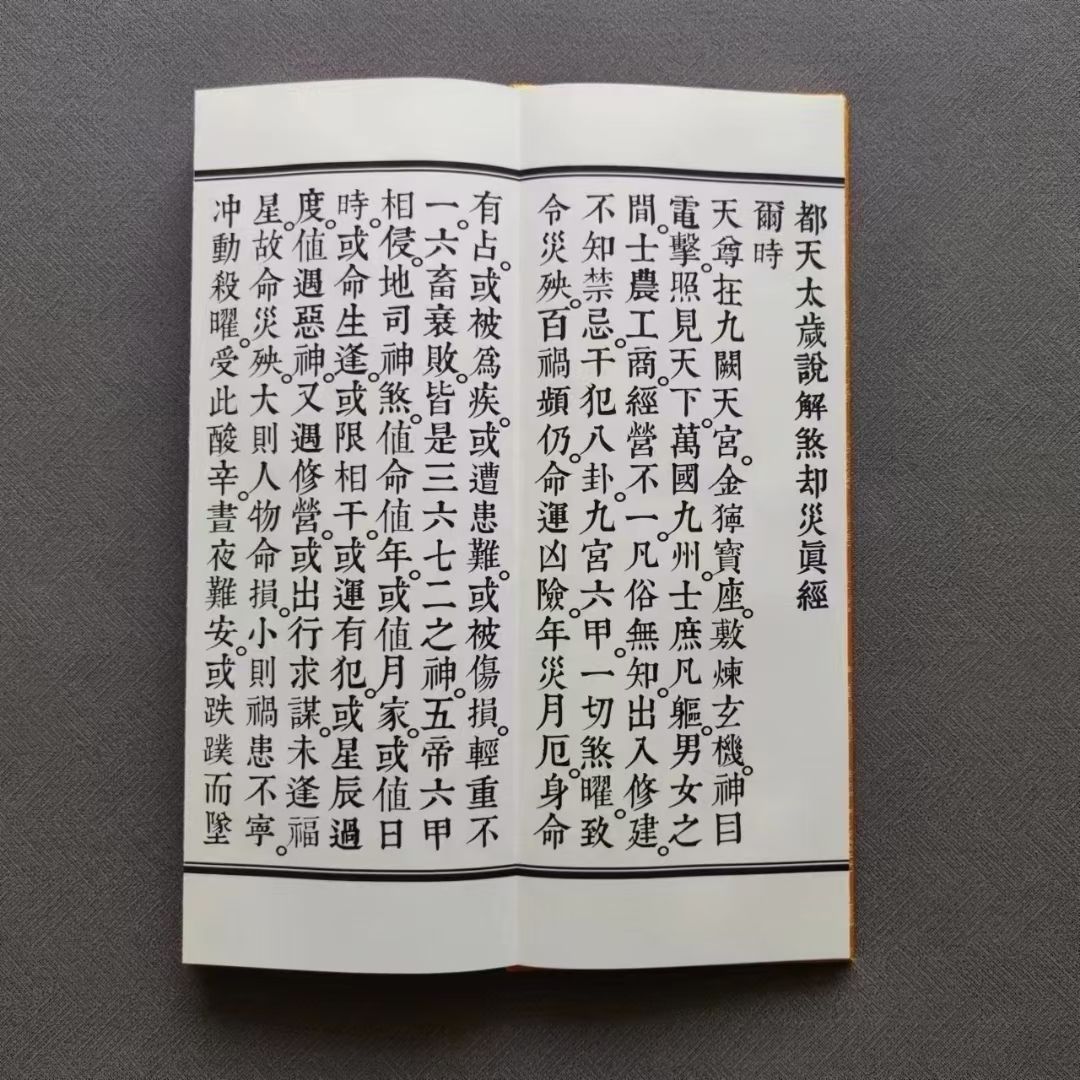 都天太歲說解煞却災眞經
爾時
天尊在九闕天宮。金獰寶座。敷煉玄機。神目
電擊。照見天下。萬國九州。士庶凡軀。男女之
間。士農工商。經營不一。凡俗無知。出入修建。
不知禁忌。干犯八卦。九宮六甲。一切煞曜。致
令災殃。百禍頻仍。命運凶險。年災月厄。身命
有占。或被爲疾。或遭患難。或被傷損。輕重不
一。六畜衰敗。皆是三六七二之神。五帝六甲
相侵。地司神煞。値命値年。或値月家。或値日
時。或命生逢。或限相干。或運有犯。或星辰過
度。値遇惡神。又遇修營。或出行求謀。未逢福
星。故命災殃。大則人物命損。小則禍患不寧。
冲動殺曜。受此酸辛。晝夜難安。或跌蹼而墜